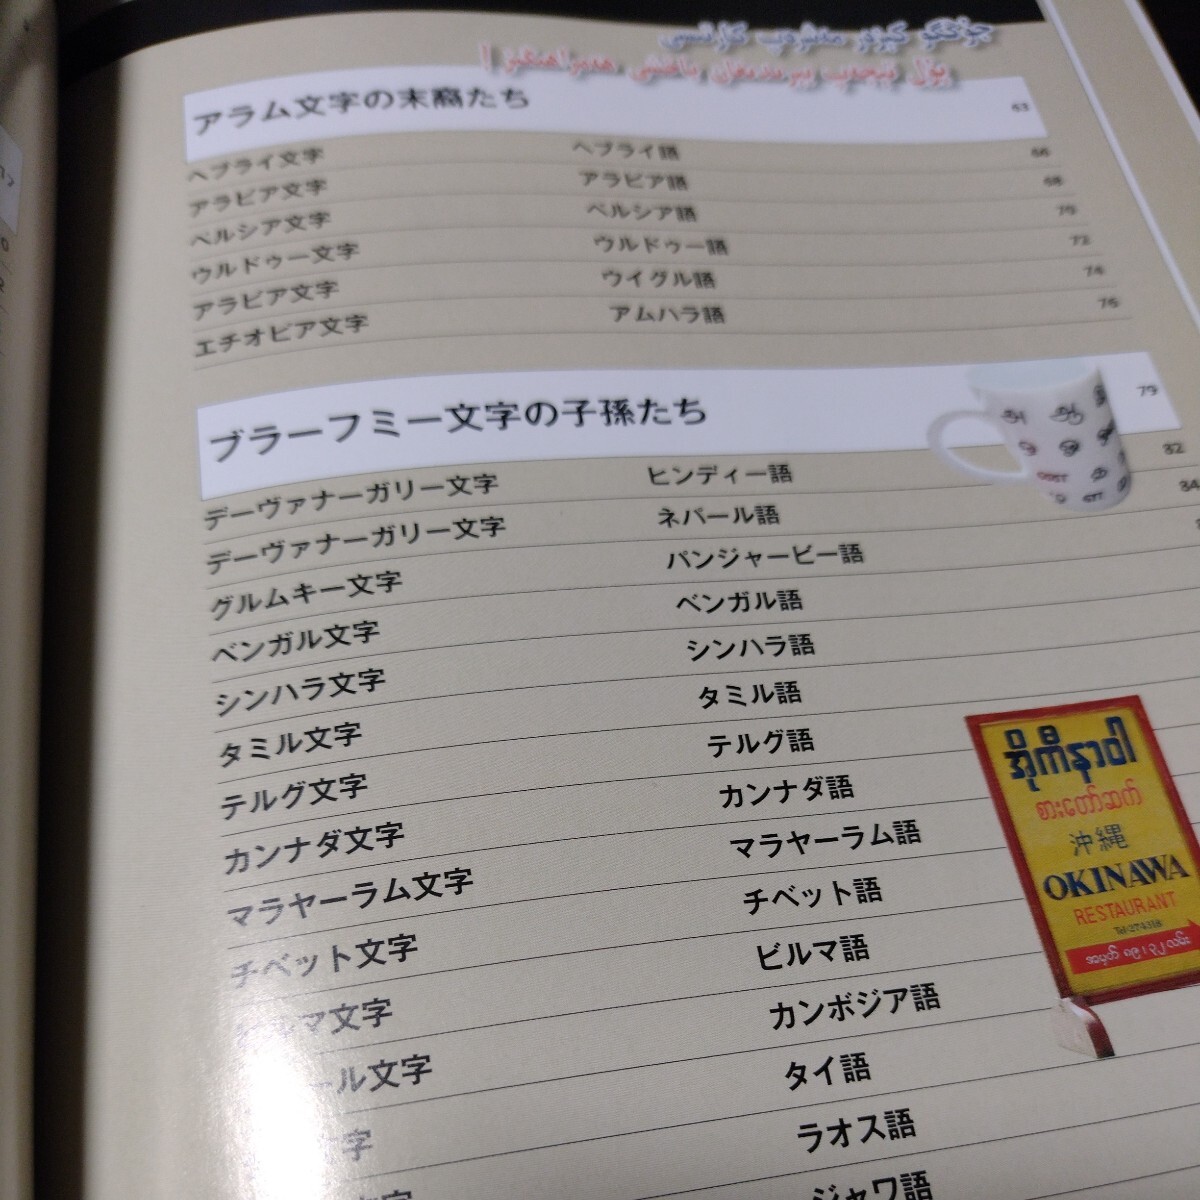 アラム文字の末裔たち 63
ヘブライ文字 ヘブライ語 66
アラビア文字 アラビア語 68
ペルシア文字 ペルシア語 70
ウルドゥー文字 ウルドゥー語 72
アラビア文字 ウイグル語 74
エチオピア文字 アムハラ語 76
ブラーフミー文字の子孫たち 79
デーヴァナーガリー文字 ヒンディー語 82
デーヴァナーガリー文字 ネパール語 84
グルムキー文字 パンジャービー語
ベンガル文字 ベンガル語
シンハラ文字 シンハラ語
タミル文字 タミル語
テルグ文字 テルグ語
カンナダ文字 カンナダ語
マラヤーラム文字 マラヤーラム語
チベット文字 チベット語
マ文字 ビルマ語
ール文字 カンボジア語
字 タイ語
文字 ラオス語
ジャワ語
စားတော်ဆက်
沖縄
OKINAWA
RESTAURANT